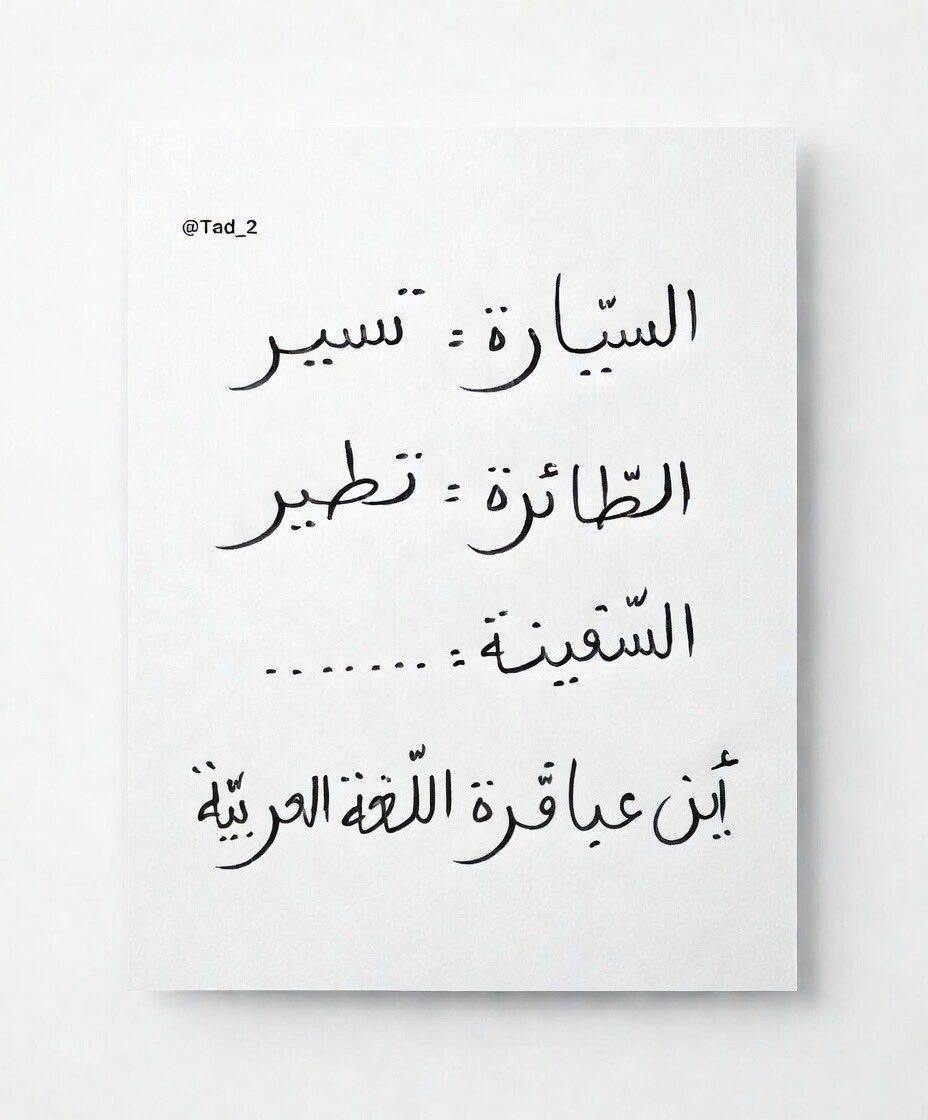 @Tad_2
السيّارة : تسير
الطّائرة : تطير
السّفينة : ........
أين عباقرة اللّغة العربيّة